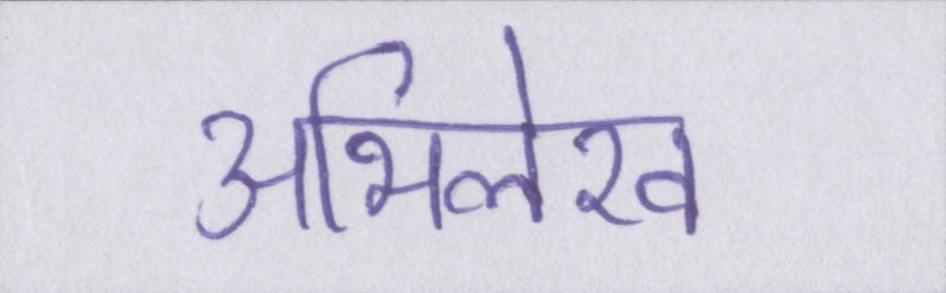 अभिलेख